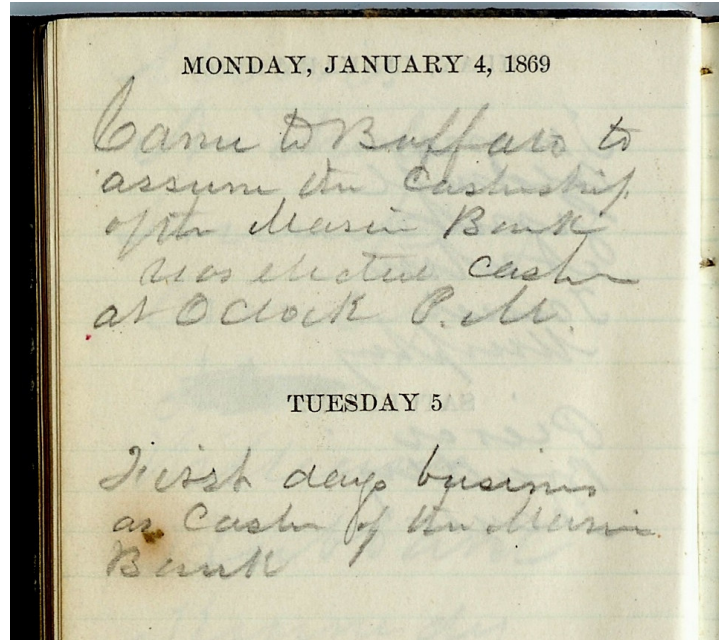 MONDAY, JANUARY 4, 1869
Came to Buffalo to
assume the Cashiership
of the Marine Bank
was elected Cashier
at O Clock P.M.
TUESDAY 5
First days business
as Cashier of the Marine
Bank